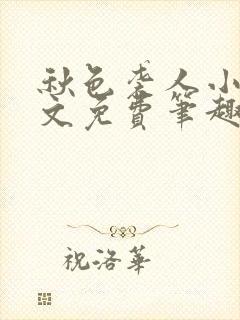 秋色袭人小
文免费笔趣
祝洛华